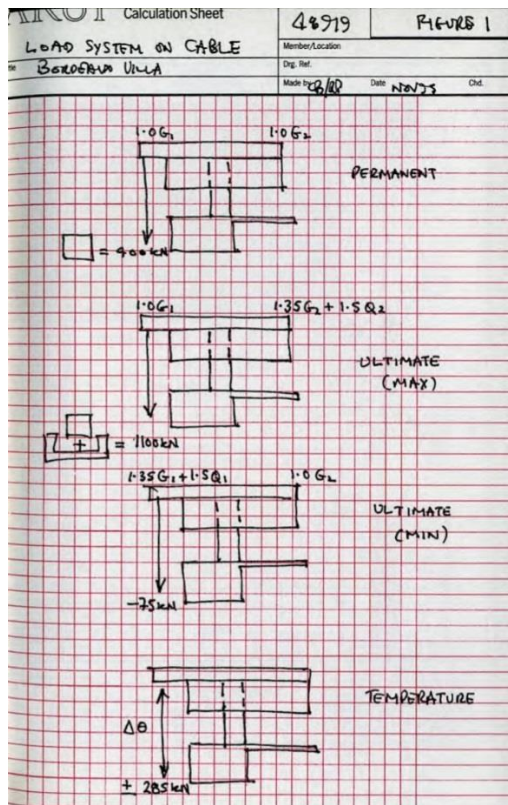 ARUP Calculation Sheet
48979 FIGURE 1
LOAD SYSTEM ON CABLE
Member/Location
BORDEAUX VILLA
Drg. Ref.
Made by CB/RP Date NOV95 Chd.
1.0G₁ 1.0G₂
PERMANENT
= 400kN
1.0G₁ 1.35G₂ + 1.5Q₂
ULTIMATE
(MAX)
+ = 1100kN
1.35G₁ + 1.5Q₁ 1.0G₂
ULTIMATE
(MIN)
-75kN
TEMPERATURE
Δθ
± 285kN